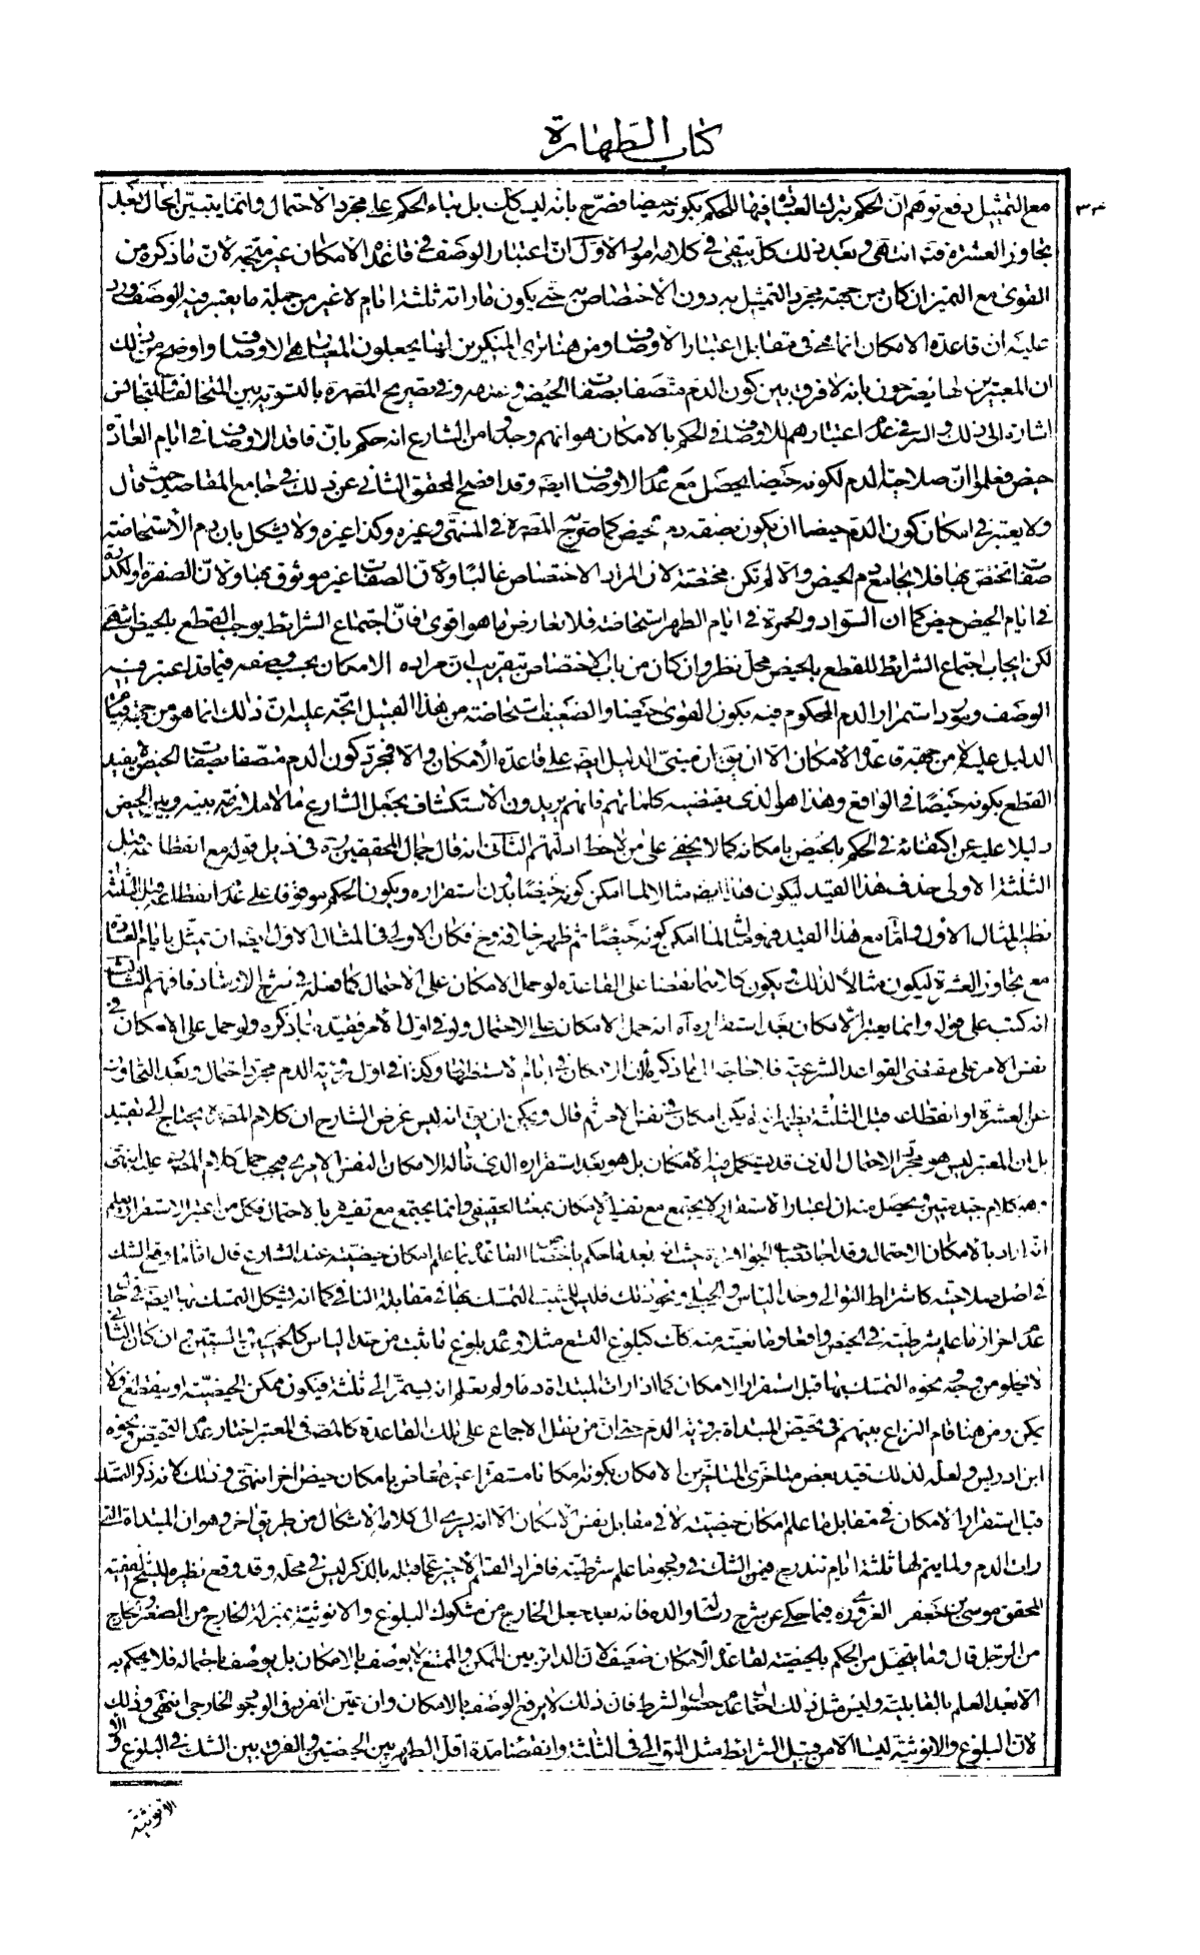 كتاب الطهارة
مع التمثيل دفع توهم ان الحكم بترك العبادة فيها للحكم بكونه حيضا فصرّح بانه ليس كك بل بناء الحكم على مجرد الاحتمال وانما يتبيّن الحال بعد
تجاوز العشرة فت انتهى وبعد ذلك كلّه يبقى فى كلامه امور الاوّل انّ اعتبار الوصف فى قاعدة الامكان غير متّجه لانّ ما ذكره من
القوىّ مع التميز ان كان من جهة مجرد التمثيل به دون الاختصاص به حتى يكون ما راته ثلثة ايام لا غير من جملة ما يعتبر فيه الوصف ورد
عليه ان قاعدة الامكان انما هى فى مقابل اعتبار الاوصاف ومن هنا ترى المنكرين لها يجعلون المعيار هى الاوصاف واوضح من ذلك
ان المعتبرين لها يصرّحون بانه لا فرق بين كون الدم متصفا بصفات الحيض وعدمه وفى تصريح المص ره بالتسوية بين المتخالف والمتجانس
اشارة الى ذلك والسرّ فى عدم اعتبارهم للاوصاف فى الحكم بالامكان هو انهم وجدوا من الشارع انه حكم بانّ فاقد الاوصاف فى ايام العادة
حيض فعلموا انّ صلاحية الدم لكونه حيضا يحصل مع عدم الاوصاف ايضا وقد افصح المحقق الثانى عن ذلك فى جامع المقاصد حيث قال
ولا يعتبر فى امكان كون الدم حيضا ان يكون بصفة دم الحيض كما صرّح به المص ره فى المنتهى وغيره وكذا غيره ولا يشكل بان دم الاستحاضة
صفاته تختصّ بها فلا يجامع دم الحيض والا لم تكن مختصة لان المراد الاختصاص غالبًا ولانّ الصفات غير موثوق بها ولانّ الصفرة والكدرة
فى ايام الحيض حيض كما ان السواد والحمرة فى ايام الطهر استحاضة فلا تعارض ما هو اقوى فانّ اجتماع الشرائط يوجب القطع بالحيض انتهى
لكن ايجاب اجتماع الشرائط للقطع بالحيض محلّ نظر وان كان من باب الاختصاص بتقريب انّ مراده الامكان بحسب وصفه فيما قد اعتبر فيه
الوصف ويؤد استمرار الدم المحكوم فيه بكون القوىّ حيضا والضعيف استحاضة من هذا القبيل اتّجه عليه انّ ذلك انما هو من جهة قيام
الدليل عليه لا من جهة قاعدة الامكان الا ان يق ان مبنى الدليل ايضا على قاعدة الامكان والا فمجرّد كون الدم متصفا بصفات الحيض لا يفيد
القطع بكونه حيضًا فى الواقع وهذا هو الذى يقتضيه كلماتهم فانهم يريدون الاستكشاف بجعل الشارع ما لا ملازمة بينه وبين الحيض
دليلا عليه عن اكتفائه فى الحكم بالحيض بامكانه كما لا يخفى على من لاحظ ادلتهم الثانى انه قال جمال المحققين ره فى ذيل قوله مع انقطاعه قبل
الثلثة الاولى حذف هذا القيد ليكون هذا ايضا مثالا لما امكن كونه حيضًا بدون استقراره ويكون الحكم موقوفا على عدم انقطاعه قبل الثلثة
نظير المثال الاوّل وامّا مع هذا القيد فهو مثال لما امكن كونه حيضًا ثم ظهر خلافه وح فكان الاولى فى المثال الاول ايضا ان تمثّل بايام العادة
مع تجاوز العشرة ليكون مثالًا لذلك ويكون كلاهما نقضا على القاعدة لو حمل الامكان على الاحتمال كما فصله فى شرح الارشاد فافهم الثالث
انه كتب على قوله وانما يعتبر الامكان بعد استقراره آه انه حمل الامكان على الاحتمال ولو فى اوّل الامر فقيّده بما ذكره ولو حمل على الامكان فى
نفس الامر على مقتضى القواعد الشرعية فلا حاجة الى ما ذكره لأن الامكان فى ايام الاستظهار وكذا فى اول رؤية الدم مجرد احتمال وبعد التجاوز
عن العشرة او انقطاعه قبل الثلثة يظهر انه لم يكن امكان فى نفس الامر ثم قال ويمكن ان يق انه ليس غرض الشارح ان كلام المص ره يحتاج الى تقييد
بل ان المعتبر ليس هو مجرّد الاحتمال الذى قد يستعمل فيه الامكان بل هو بعد استقراره الذى مآله الامكان النفس الامرى فيجب حمل كلام المص ره عليه انتهى
وهو كلام جيد متين ويحصل منه ان اعتبار الاستقرار لا يجتمع مع تفسير الامكان بمعناه الحقيقى وانما يجتمع مع تفسيره بالاحتمال فكل من اعتبر الاستقرار يعلم
انه اراد بالامكان الاحتمال وقد اجاد صاحب الجواهر ره حيث انه بعد ما حكم باختصاص القاعدة بما علم امكان حيضيته عند الشارع قال امّا ما وقع الشك
فى اصل صلاحيته كاشتراط التوالى وحد الياس والحبلى ونحو ذلك فليس للمثبت التمسك بها فى مقابلة النافى كما انه يشكل التمسك بها ايضا فى حال
عدم احراز ما علم شرطيته فى الحيض واقعا وما نعيته منه كك كبلوغ التسع مثلا وعدم بلوغ ما ثبت من حد الياس كالخمسين او الستين ان كان الثانى
لا يخلو من وجه ونحوه التمسك بها قبل استقرار الامكان كما اذا رات المبتداة دما ولم يعلم انه يستمرّ الى ثلثة فيكون ممكن الحيضية او ينقطع ولا
يمكن ومن هنا قام النزاع بينهم فى تحيض المبتداة برؤية الدم حتى انّ من نقل الاجماع على تلك القاعدة كالمص فى المعتبر اختار عدم التحيض ونحوه
ابن ادريس ولعله لذلك قيد بعض متاخرى المتاخرين الامكان بكونه امكانا مستقرا غير معارض بامكان حيض اخر انتهى وذلك لانه ذكر التمسك
قبل استقرار الامكان فى مقابل ما علم امكان حيضيته لا فى مقابل نفس الامكان الا انه يسرى الى كلامه الاشكال من طريق اخر وهو ان المبتداة التى
رات الدم ولما يتم لها ثلثة ايام تندرج فيمن الشك فى وجود ما علم شرطيته فافراد القسم الاخير عما قبله بالذكر ليس فى محله وقد وقع نظيره للشيخ الفقيه
المحقق موسى بن جعفر الغروى ره فيما حكى عن شرح رسالة والده فانه بعد جعل الخارج من مشكوك البلوغ والانوثية بمنزلة الخارج من الصغيرة والخارج
من الرّجل قال وما يتخيل من الحكم بالحيضية لقاعدة الامكان ضعيف لانّ الدائر بين الممكن والممتنع لا يوصف بالامكان بل يوصف باحتماله فلا يحكم به
الا بعد العلم بالقابلية وليس مثل ذلك احتمال عدم حصول الشرط فان ذلك لا يرفع الوصف بالامكان وان عيّن الفرد فى الوجود الخارجى انتهى وذلك
لان البلوغ والانوثية ليسا الا من قبيل الشرائط مثل التوالى فى الثلثة وانقضاء مدة اقل الطهر بين الحيضتين والفرق بين الشك فى البلوغ او
الانوثية